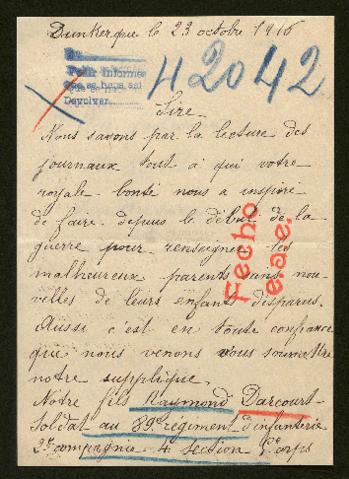 Dunkerque le 23 octobre 1916
Pedir informes
que se haga así
Devolver
42042
Sire,
Nous savons par la lecture des
journaux tout ce qui votre
royale bonté nous a inspiré
de faire depuis le début de la
guerre pour renseigner les
malheureux parents sans nou-
velles de leurs enfants disparus.
Aussi c'est en toute confiance
que nous venons vous soumettre
notre supplique.
Notre fils Raymond Darcourt
soldat au 89e régiment d'infanterie
2e compagnie 4 section 5e corps
Fecho